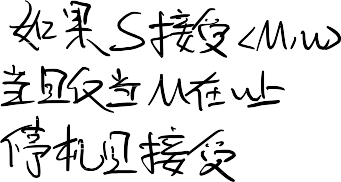 如果S接受<M,w>
当且仅当M在w上
停机且接受